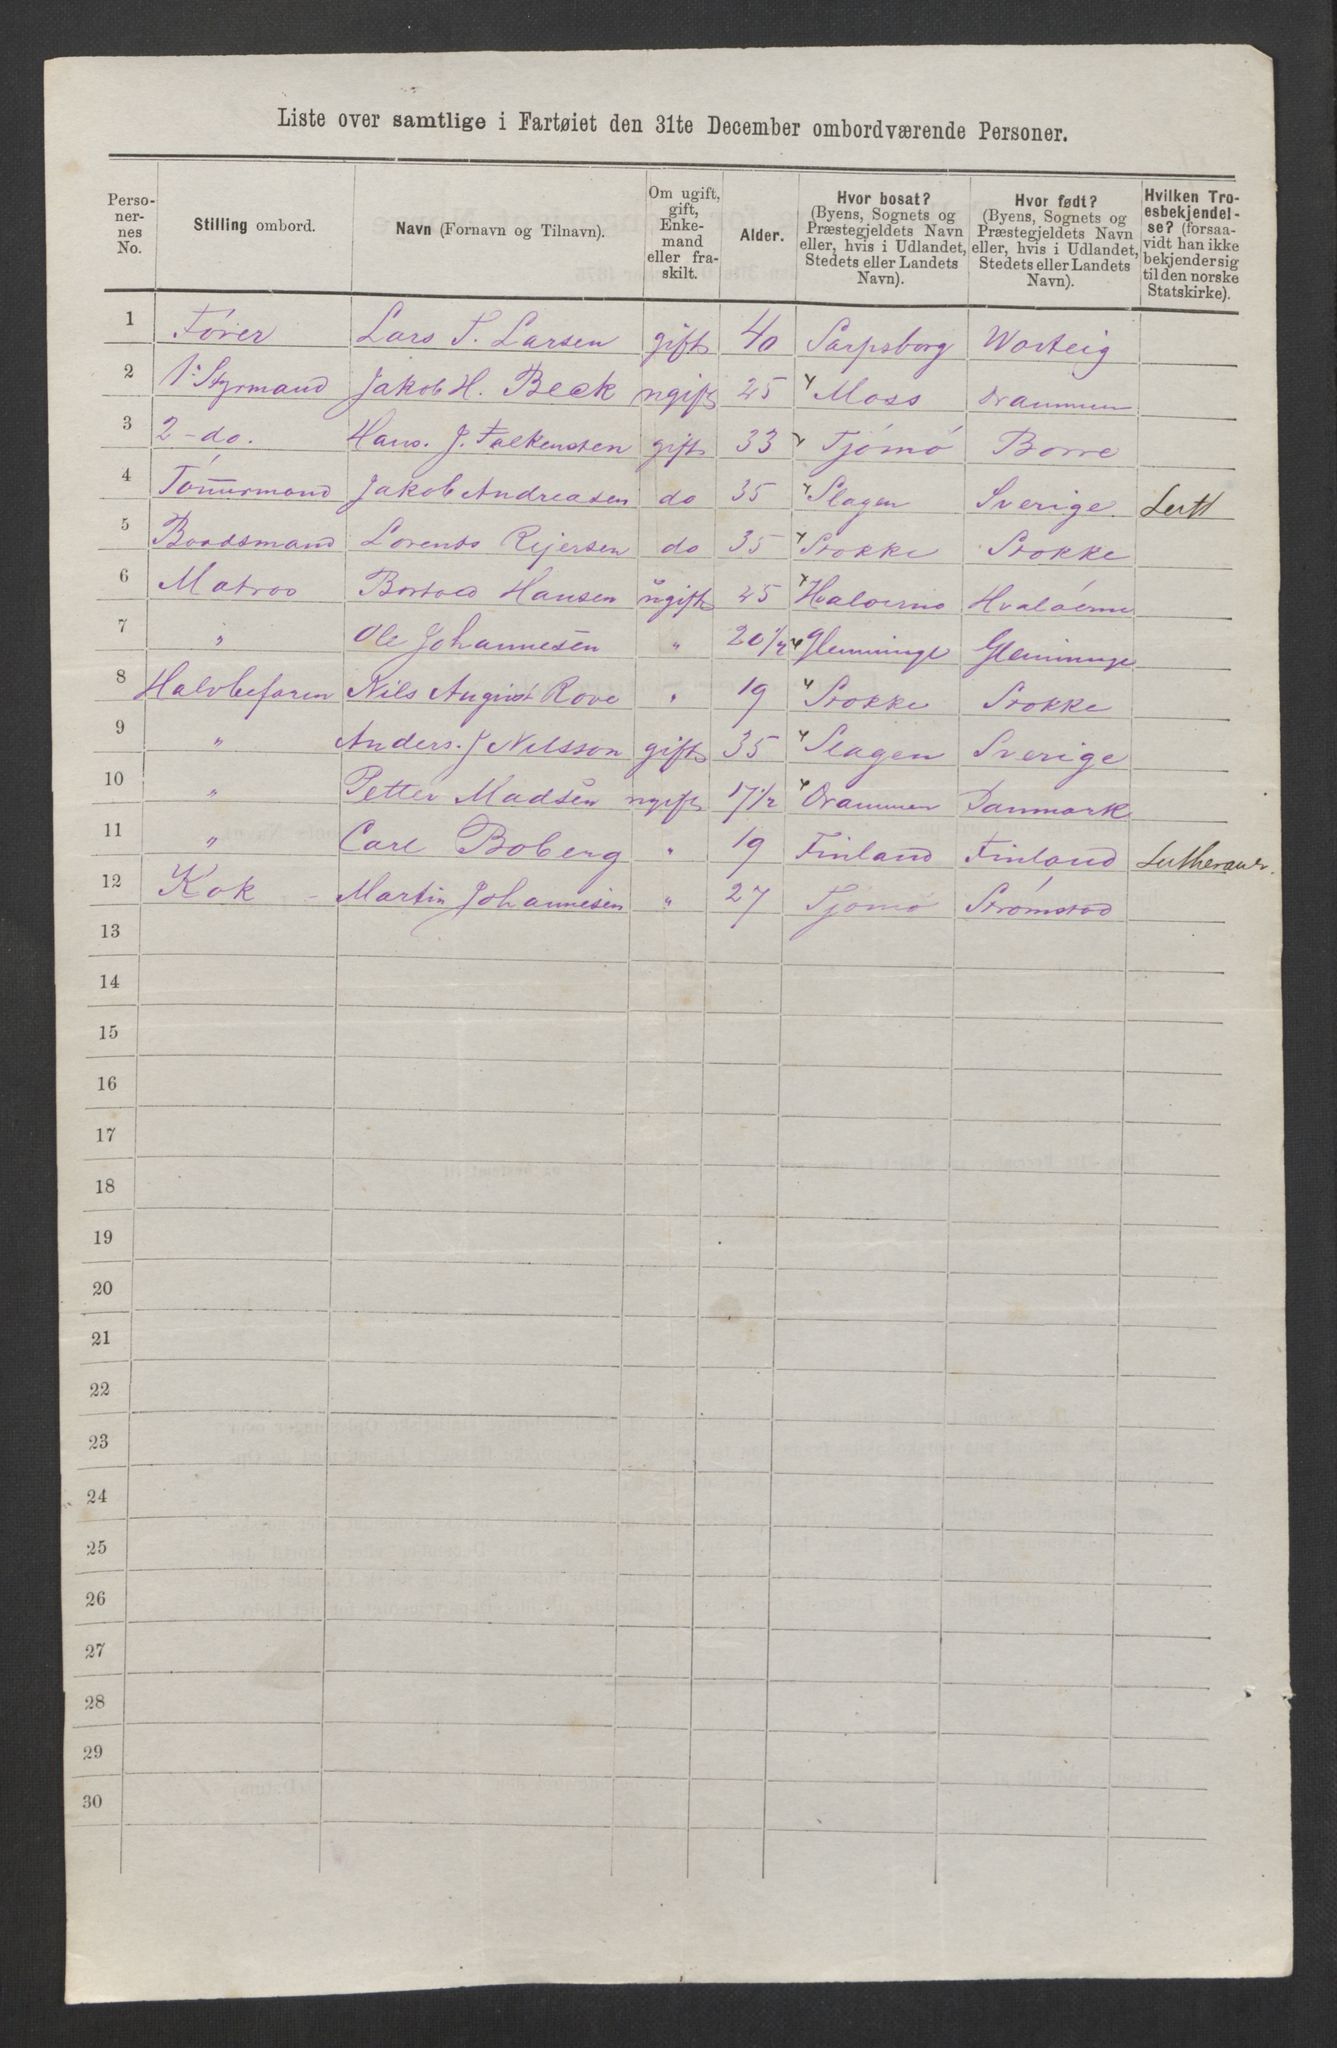 Liste over samtlige i Fartøiet den 31te December ombordværende Personer.
Perso-nernes No. | Stilling ombord. | Navn (Fornavn og Tilnavn). | Om ugift, gift, Enkemand eller fraskilt. | Alder. | Hvor bosat? (Byens, Sognets og Præstegjeldets Navn eller, hvis i Udlandet, Stedets eller Landets Navn). | Hvor født? (Byens, Sognets og Præstegjeldets Navn eller, hvis i Udlandet, Stedets eller Landets Navn). | Hvilken Troesbekjendelse? (forsaavidt han ikke bekjender sig til den norske Statskirke).
1 Fører Lars T. Larsen gift 40 Sarpsborg Worteig
2 1ᵉ Styrmand Jakob H. Beck ugift 25 Moss Drammen
3 2-do. Hans. J. Falkensten gift 33 Tjömö Borre
4 Tömmermand Jakob Andreasen do 35 Slagen Sverige. Luth
5 Baadsmand Lorents Rejersen do 35 Stokke Stokke
6 Matros Bertoed Hansen ugift 25 Hvaloerne Hvalöerne
7 " Ole Johannesen " 20 1/2 Glemminge Glemminge
8 Halvbefaren Nils August Rove " 19 Stokke Stokke
9 " Anders. J Nilsson gift 35 Slagen Sverige
10 " Petter Madsen ugift 17 1/2 Drammen Danmark
11 " Carl Boberg " 19 Finland Finland Lutheraner.
12 Kok - Martin Johannesen " 27 Tjömö Strömstad
13
14
15
16
17
18
19
20
21
22
23
24
25
26
27
28
29
30